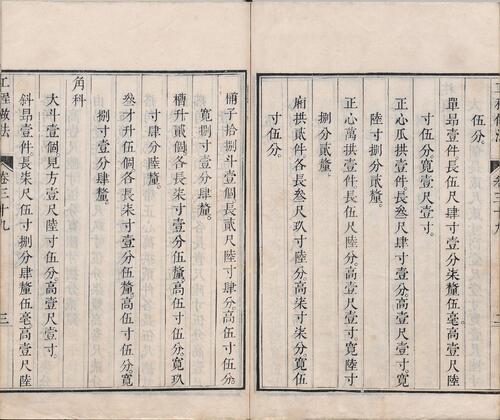 單昂壹件長伍尺肆寸壹分柒釐伍毫高壹尺陸
寸伍分寬壹尺壹寸。
正心瓜拱壹件長叁尺肆寸壹分高壹尺壹寸。寬
陸寸捌分貳釐。
正心萬拱壹件長伍尺陸分。高壹尺壹寸。寬陸寸
捌分貳釐。
廂拱貳件各長叁尺玖寸陸分高柒寸柒分寬伍
寸伍分。
桶子拾捌斗壹個長貳尺陸寸肆分高伍寸伍分。
寬捌寸壹分肆釐。
槽升貳個各長柒寸壹分伍釐。高伍寸伍分。寬玖
寸肆分陸釐。
叁才升伍個各長柒寸壹分伍釐高伍寸伍分。寬
捌寸壹分肆釐。
角科
大斗壹個見方壹尺陸寸伍分高壹尺壹寸。
斜昂壹件長柒尺伍寸捌分肆釐伍毫。高壹尺陸
工程做法 卷三十九 三